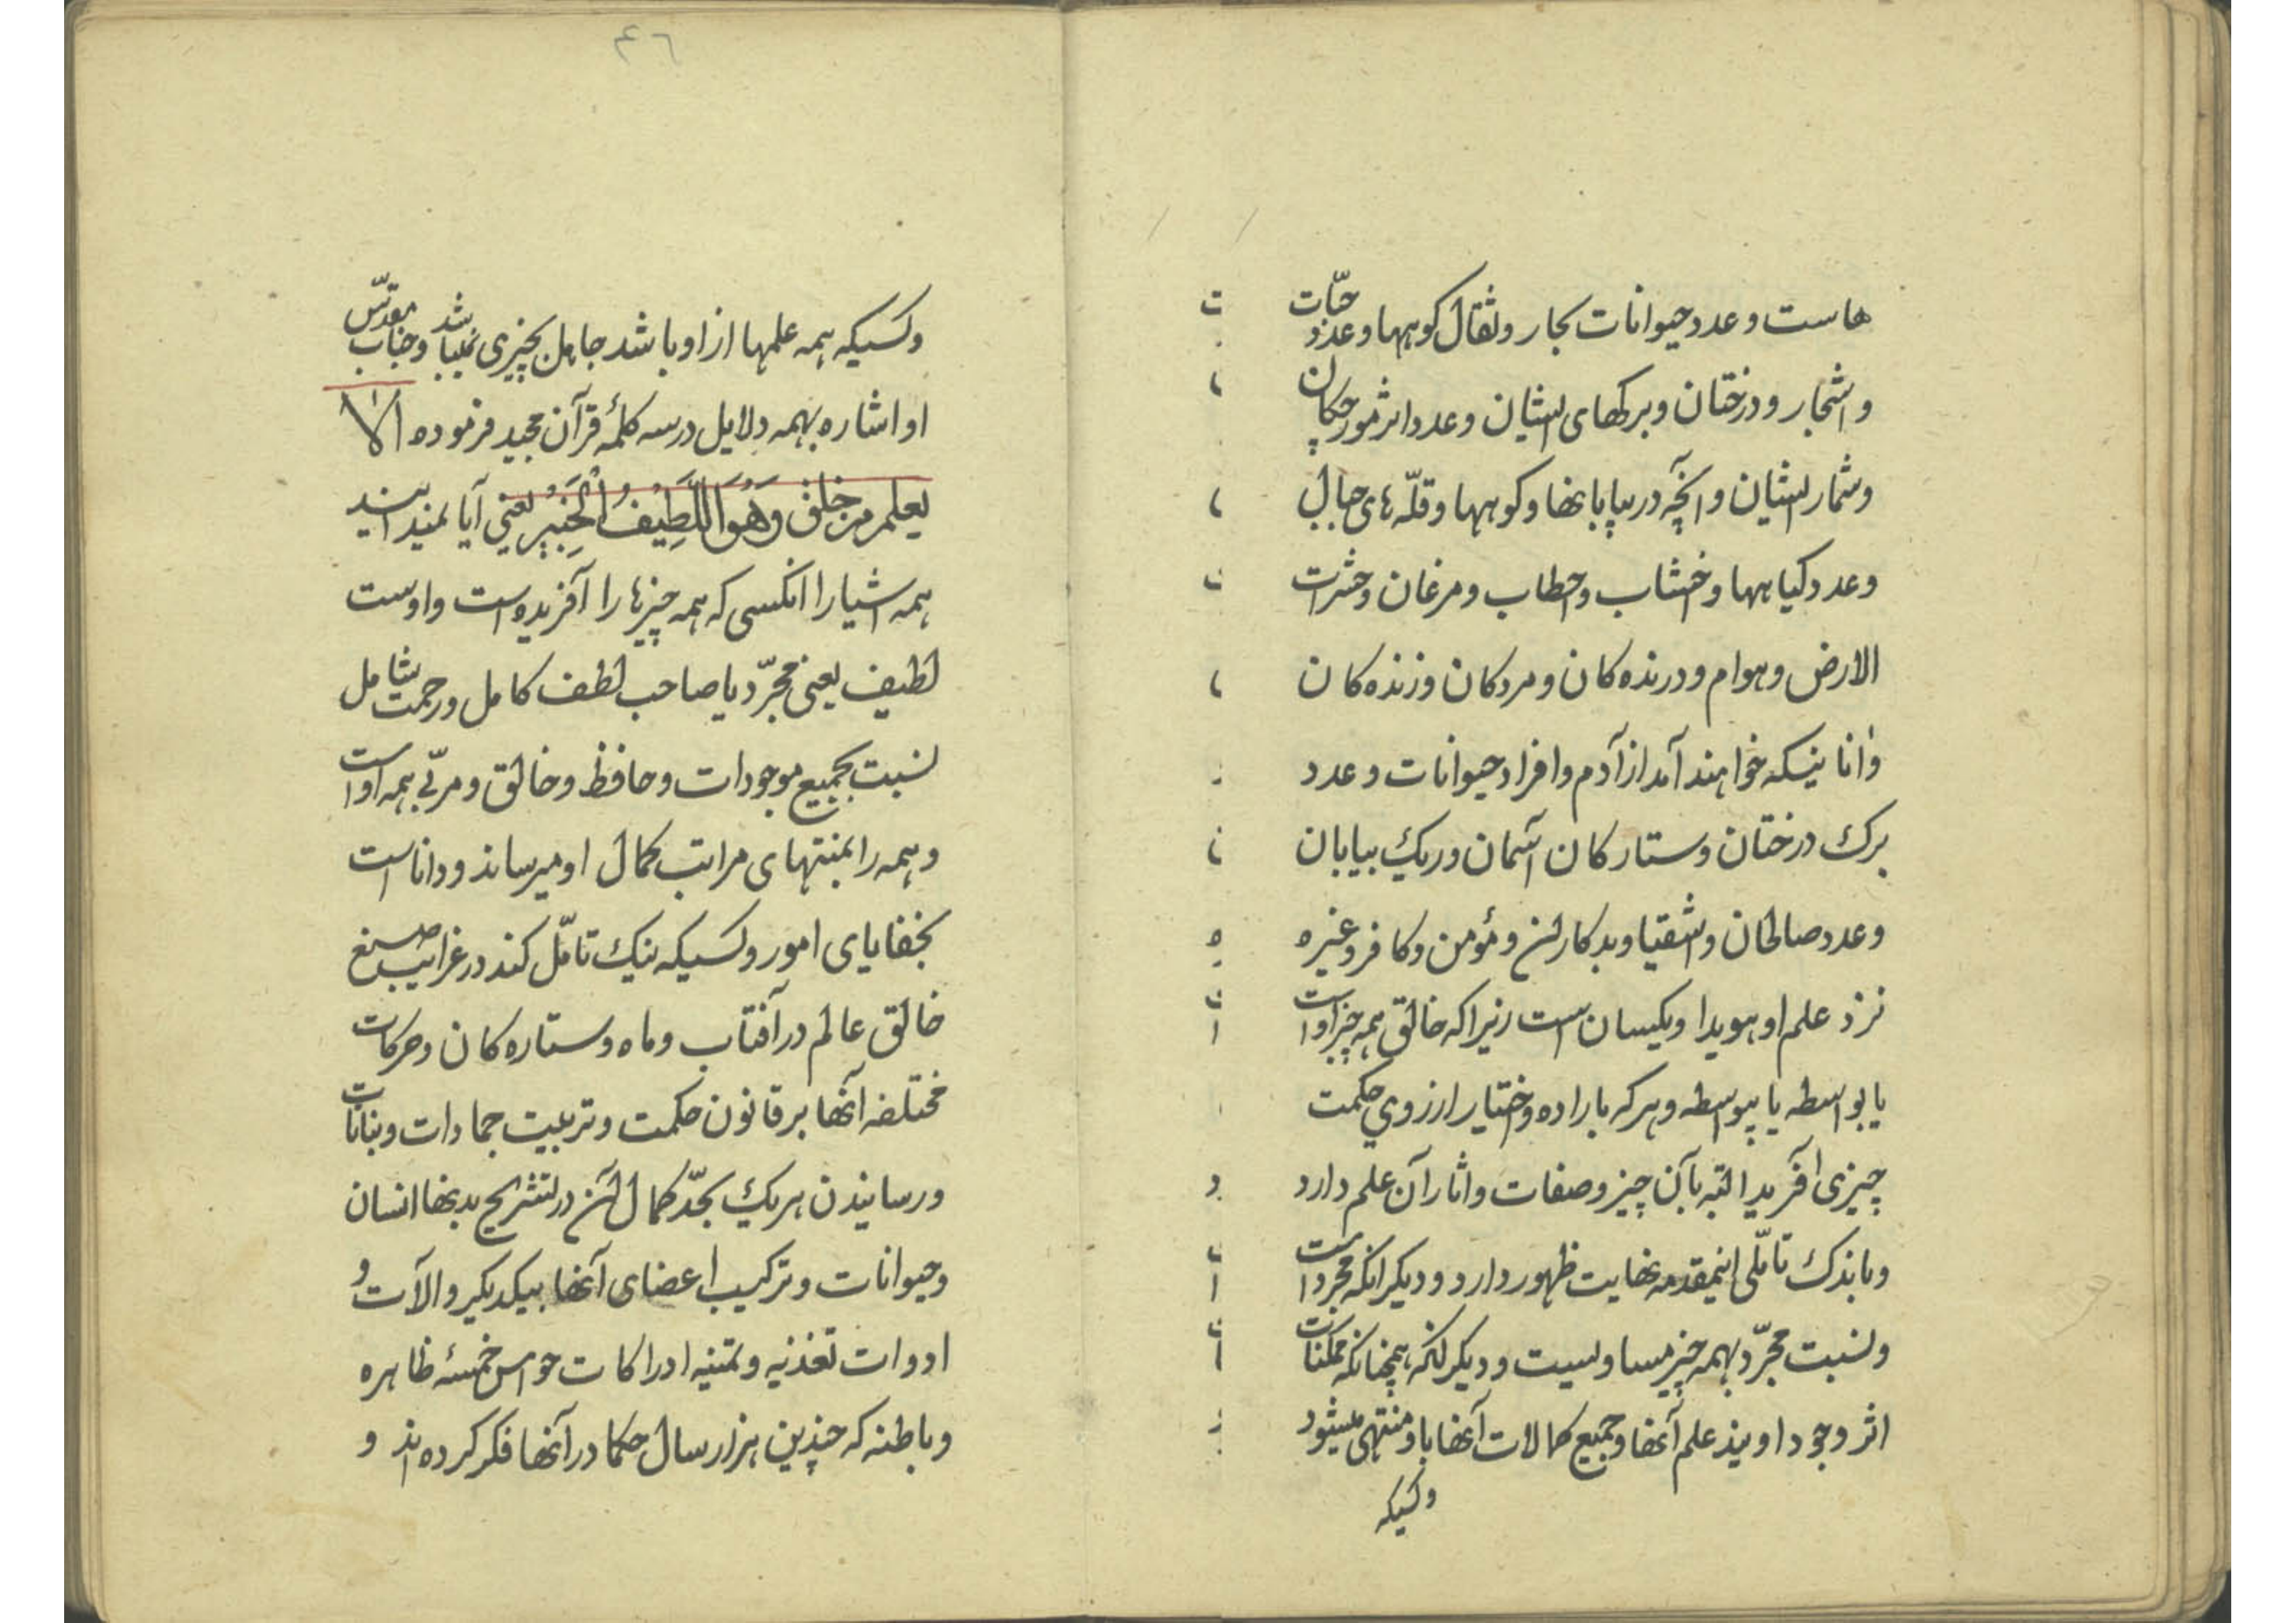 هاست و عدد حیوانات بحار و ثقال کوهها و عدد حبّات
و اشجار و درختان و برکهای ایشان و عدد اثر مورچکان
و شمار ایشان و آنچه در بیابانها و کوهها و قلّه های جبال
و عدد کیاهها و اخشاب و احطاب و مرغان و حشرات
الارض و هوام و درنده کان و مردکان و زنده کان
و انانیکه خواهند آمد از آدم و افراد حیوانات و عدد
برک درختان و ستارکان آسمان و ریک بیابان
و عدد صالحان و اشقیا و بدکاران و مؤمن و کافر و غیره
نزد علم او هویدا و یکسان است زیرا که خالق همه چیز اوا است
یا بواسطه یا بیواسطه و هر که باراده و اختیار از روی حکمت
چیزی آفرید البته بآن چیز و صفات و اثار آن علم دارد
و باندک تاملّی اینمقدمه نهایت ظهور دارد و دیکر انکه مجرد است
و نسبت مجرّد بهمه چیز مساویست و دیکر انکه همچنانکه ممکنات
اثر وجود اویند علم آنها و جمیع کمالات آنها باو منتهی میشود
وکسیکه
٤٦
وکسیکه همه علمها از او باشد جاهل بچیزی نمیباشد و جناب مقدّس
او اشاره بهمه دلایل در سه کلمهٔ قرآن مجید فرموده الا
یعلم من خلق وَهُوَ اللَّطِیفُ الْخَبِیرُ یعنی آیا نمیداند
همه اشیا را انکسی که همه چیزها را آفریده است و اوست
لطیف یعنی مجرّد یا صاحب لطف کامل و رحمت شامل
نسبت بجمیع موجودات و حافظ و خالق و مربّی همه اوست
و همه را بمنتهای مراتب کمال او میرساند و دانا است
بخفایای امور و کسیکه نیک تامّل کند در غرایب صنع
خالق عالم در آفتاب و ماه و ستاره کان و حرکات
مختلفه آنها بر قانون حکمت و تربیت جمادات و نباتات
و رسانیدن هر یک بحدّ کمال آن در تشریح بدنها انسان
و حیوانات و ترکیب اعضای آنها بیکدیکر و الآت و
ادوات تغذیه و تمنیه ادراکات حواس خمسهٔ ظاهره
و باطنه که چندین هزار سال حکما در آنها فکر کرده اند و